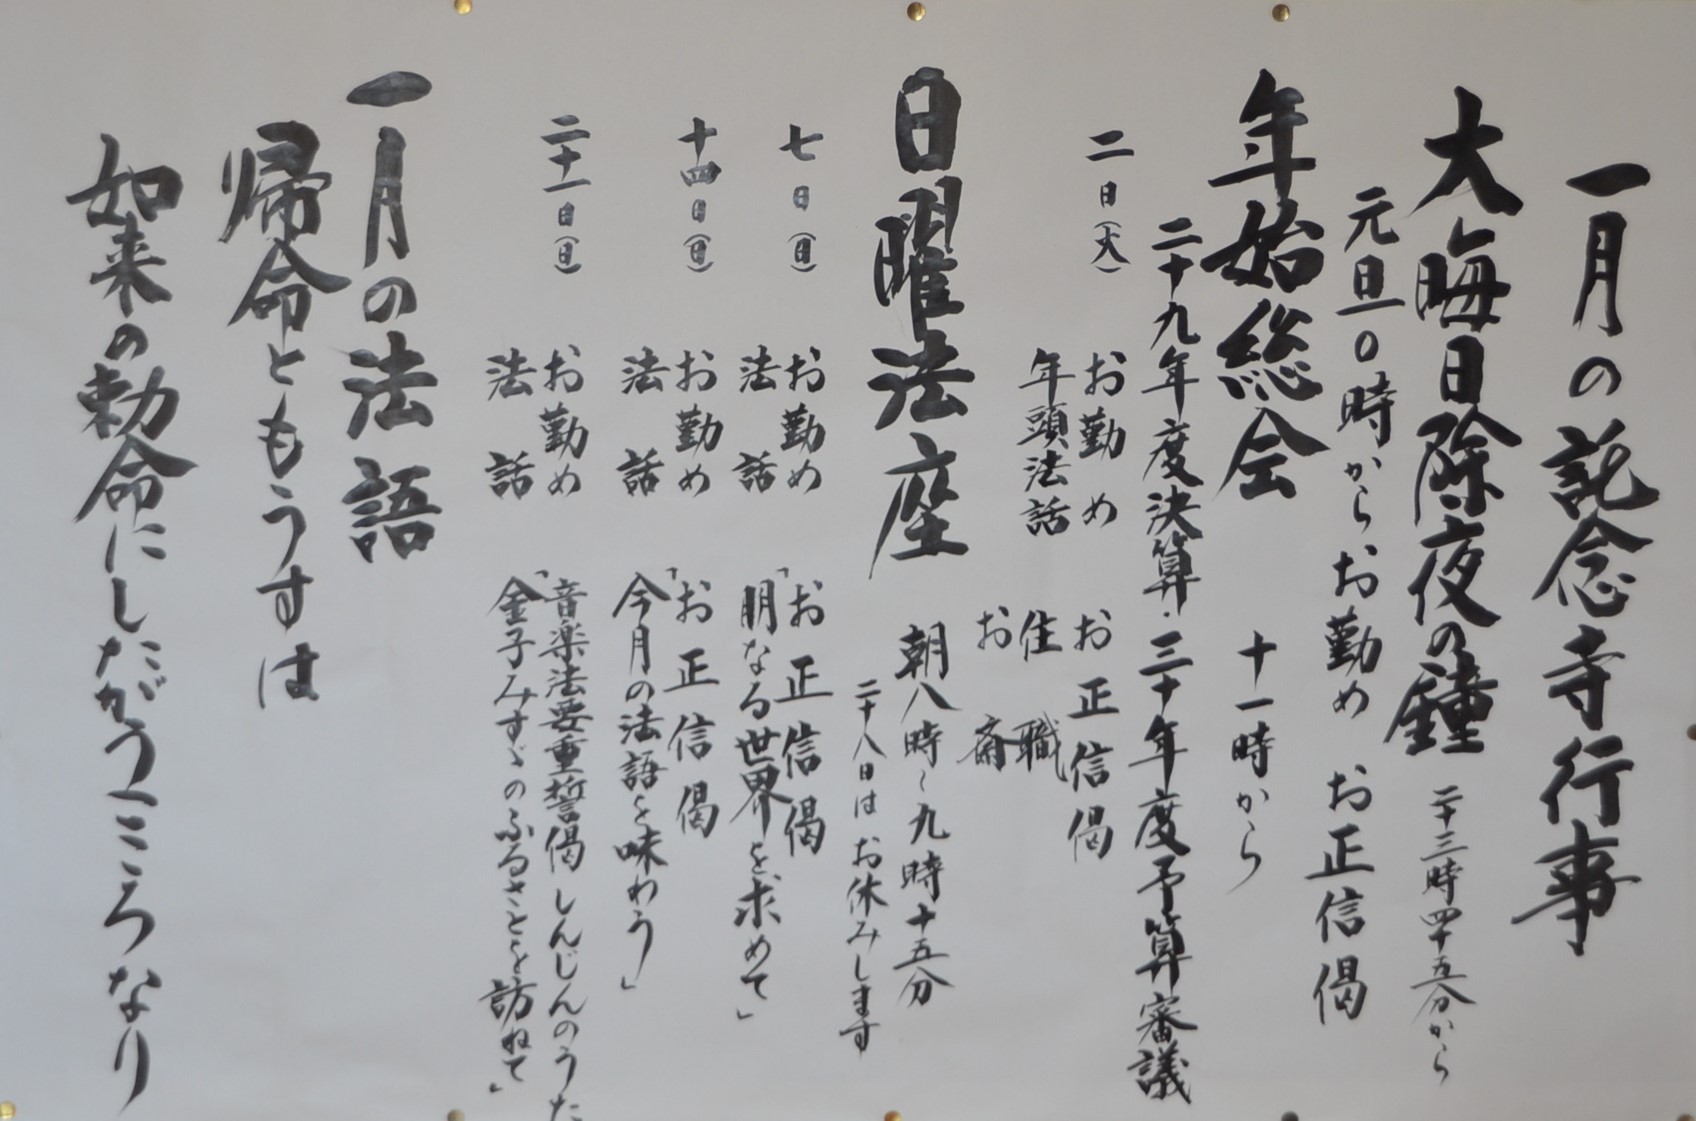 一月の記念寺行事
大晦日除夜の鐘 二十三時四十五分から
元旦０時からお勤め お正信偈
年始総会 十一時から
二十九年度決算・三十年度予算審議
二日（火） お勤め お正信偈
年頭法話 住職
お斎
日曜法座 朝八時〜九時十五分
二十八日はお休みします
七日（日） お勤め お正信偈
法話 「明なる世界を求めて」
十四日（日） お勤め お正信偈
法話 「今月の法語を味わう」
二十一日（日） お勤め 音楽法要重誓偈 しんじんのうた
法話 「金子みすゞのふるさとを訪ねて」
一月の法語
帰命ともうすは
如来の勅命にしたがうこころなり